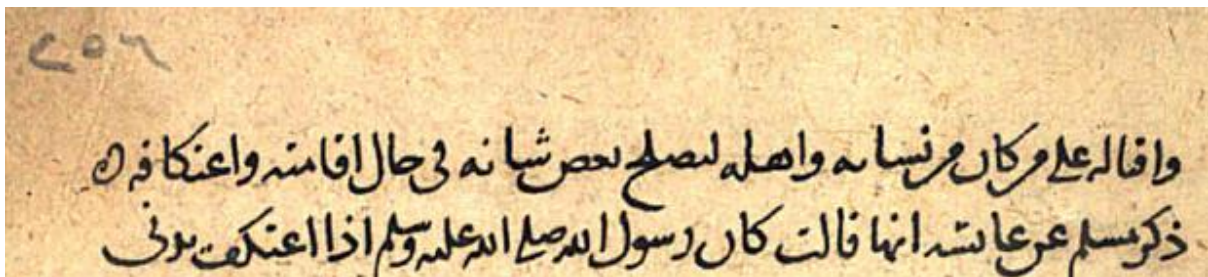 ٢٥٦
واقباله على من كان من نسائه واهله ليصلح بعض شانه في حال اقامته واعتكافه ه
ذكر مسلم عن عائشه انها قالت كان رسول الله صلى الله عليه وسلم اذا اعتكف يدني